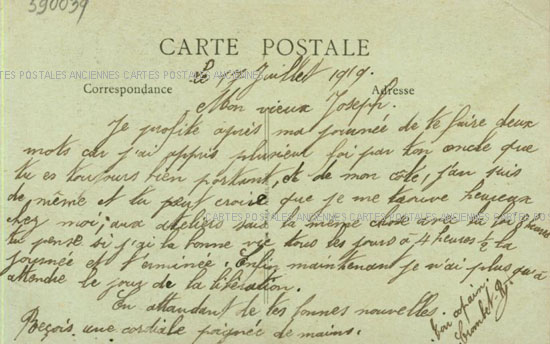 590039
CARTE POSTALE
Le 17 Juillet 1919.
CARTES POSTALES ANCIENNES CARTES POSTALES ANCIENNES CARTES POSTALES ANCIENNES
Correspondance
Adresse
Mon vieux Joseph.
Je profite après ma journée de te faire deux
mots car j'ai appris plusieur foi par ton oncle que
tu es toujours bien portant, et de mon côté, j'an suis
de même et tu peut croire que je me trouve heureux
chez moi; aux ateliers sait la même chose avec la loi 8 heures
tu pense si j'ai la bonne vie tous les jours à 4 heures ½ la
journée est terminée. Enfin maintenant je n'ai plus qu'à
attendre le jour de la libération.
En attendant de tes bonnes nouvelles.
Reçois une cordiale poignée de mains.
Ton copain